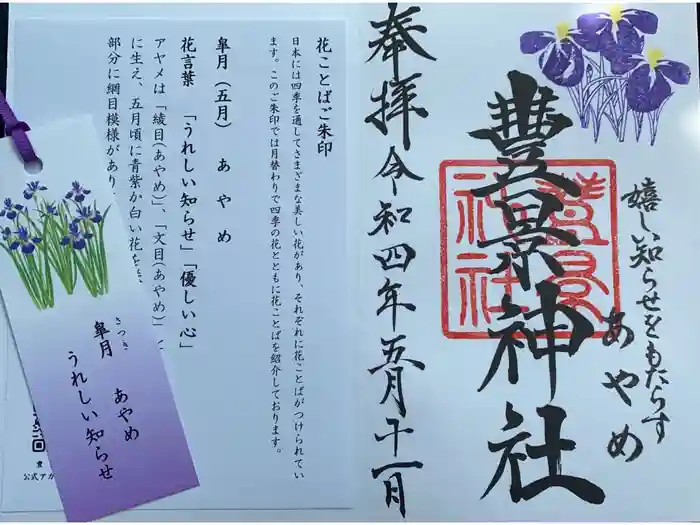 嬉しい知らせをもたらす
あやめ
豊景神社
奉拝
令和四年五月十一日
花ことばご朱印
日本には四季を通してさまざまな美しい花があり、それぞれに花ことばがつけられてい
ます。このご朱印では月替わりで四季の花とともに花ことばを紹介しております。
皐月(五月) あやめ
花言葉 「うれしい知らせ」「優しい心」
アヤメは「綾目(あやめ)」、「文目(あやめ)」と
に生え、五月頃に青紫か白い花を
部分に網目模様があり
さつき
皐月 あやめ
うれしい知らせ
豊
公式アカ